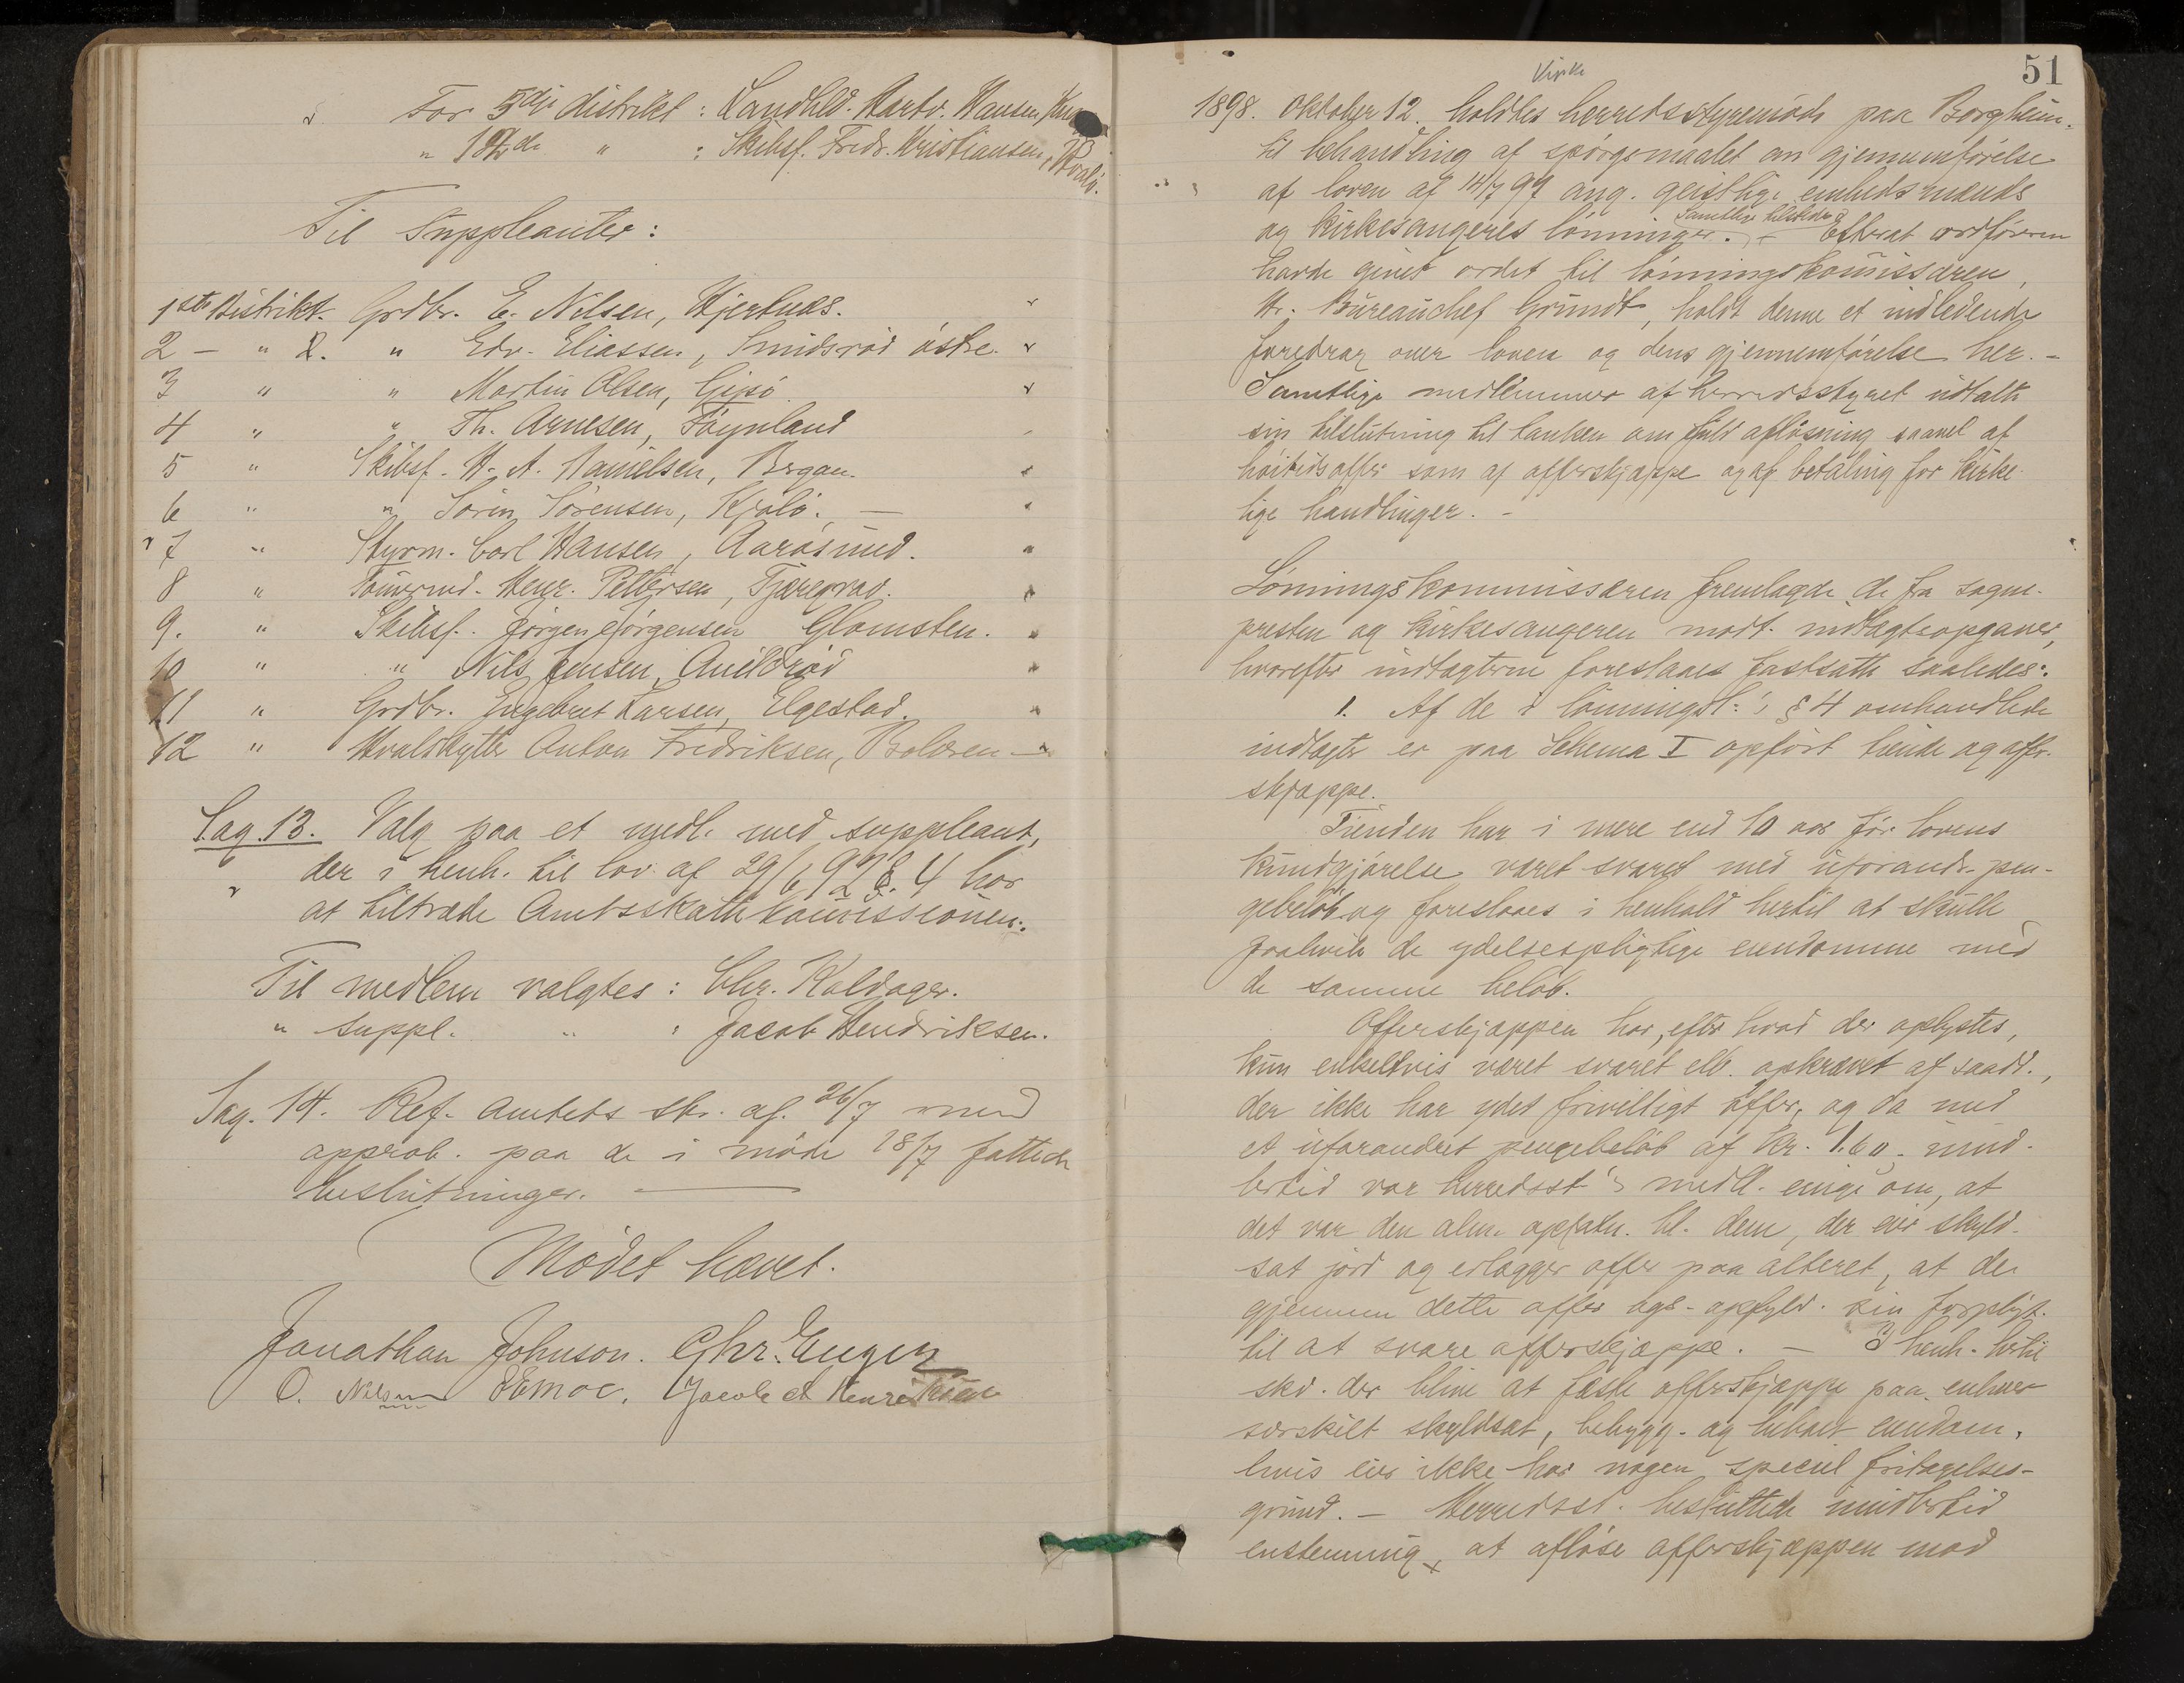 For 5dje distrikt: Landhdl. Hartv. Hansen,
" 12de " : Skibsf. Fredr. Kristiansen, Hvalö.
Til Suppleanter:
1ste Distrikt. Grdbr. E. Nilsen, Hjertnæs.
2 - " " Edv. Eliassen, Smidsröd östre.
3 " " Martin Olsen, Gipö.
4 " " Th. Arnesen, Föynland
5 " Skibsf. H. A. Danielsen, Bergan.
6 " " Sörin Sörensen, Kjölö. —
7 " Styrm. Carl Hansen, Aarösund.
8 " Tömmermd. Henr. Pettersen, Tjæregrav.
9. " Skibsf. Jörgen Jörgensen Glomsten.
10 " " Nils Jensen, Buerød
11 " Grdbr. Engebret Larsen, Elgestad.
12 " Hvalskytter Anton Fredriksen, Bolæren —
Sag. 13. Valg paa et medl. med suppleant,
der i henh. til lov af 29/6 92 § 4 har
at tiltræde Amtsskattekommissionen.
Til medlem valgtes: Chr. Kaldager.
" suppl. " : Jacob Hendriksen.
Sag. 14. Ref. Amtets skr. af 26/7 med
approb. paa de i möde 18/7 fattede
beslutninger. —
Mödet hævet.
Jonathan Johnson. Chr. Enger
O. Nilsen Jacob A Henriksen
51
Kirke
1898. Oktober 12. holdtes herredsstyremöde paa Borgheim.
til behandling af spörgsmaalet om gjennemförelse
af loven af 14/7 97 ang. geistlige embedsmænds
og kirkesangeres lönninger. Samtlige tilstede. - Efterat ordföreren
havde givet ordet til lönningskommissæren,
Hr. Bureauchef Grundt, holdt denne et indledende
foredrag over loven og dens gjennemförelse her. -
Samtlige medlemmer af herredsstyret udtalte
sin tilslutning til tanken om fuld aflösning saavel af
höitidsoffer som af offerskjæppe og af betaling for kirke-
lige handlinger. -
Lönningskommissæren fremlagde de fra sogne-
presten og kirkesangeren modt. indtægtsopgaver,
hvorefter indtægterne foreslaaes fastsatte saaledes:
1. Af de i lönningsl:'s § 4 omhandlede
indtægter er paa Schema I opfört tiende og offer-
skjæppe.
Tienden har i mere end 10 aar för lovens
kundgjörelse været svaret med uforandr. pen-
gebelöb og foreslaaes i henhold hertil at skulle
paahvile de ydelsespligtige eiendomme med
de samme belöb.
Offerskjæppen har, efter hvad der oplystes,
kun enkeltvis været svaret ell. opkrævet af saad.,
der ikke har ydet frivilligt offer, og da med
et uforandret pengebelöb af kr. 1.60. imid-
lertid var herredsst's medl. enige om, at
det var den alm. opfatn. bl. dem, der eier skyld-
sat jord og erlægger offer paa alteret, at de
gjennem dette offer ogs. opfyld. sin forpligt.
til at svare offerskjæppe. — I henh. hertil
skd. der blive at fæste offerskjæppe paa enhver
særskilt skyldsat, bebygg. og beboet eiendom,
hvis eier ikke har nogen speciel fritagelses-
grund. — Herredsst. besluttede imidlertid
enstemmig, at aflöse offerskjæppen mod